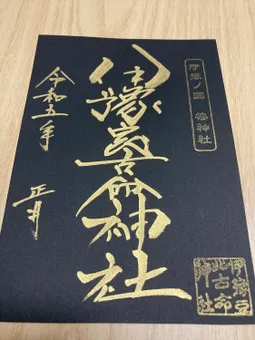 伊豫ノ國 椿神社
伊豫豆比古命神社
令和五年
正月
伊豫豆
比古命
神社